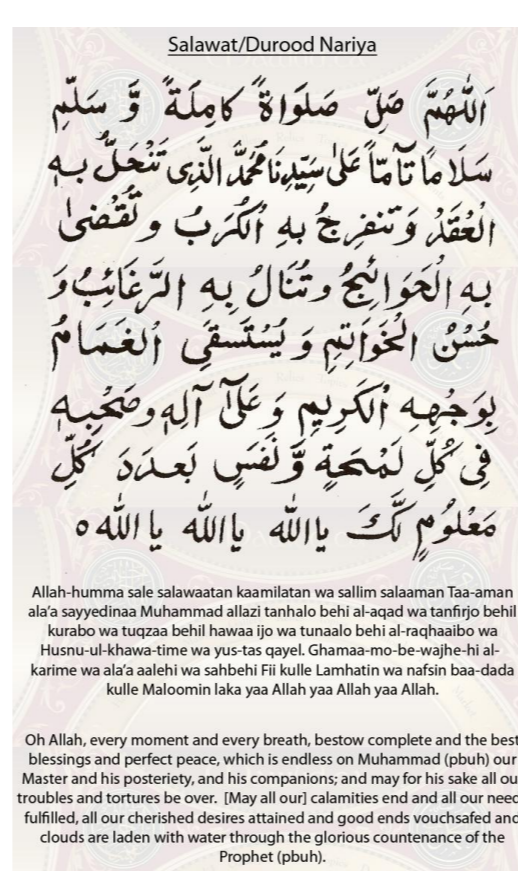 Salawat/Durood Nariya
اَللّٰهُمَّ صَلِّ صَلٰوةً كَامِلَةً وَّ سَلِّمْ
سَلَامًا تَآمّاً عَلٰی سَيِّدِنَا مُحَمَّدٍ الَّذِی تَنْحَلُّ بِهِ
الْعُقَدُ وَتَنْفَرِجُ بِهِ الْكُرَبُ وَ تُقْضٰی
بِهِ الْحَوَائِجُ وَ تُنَالُ بِهِ الرَّغَائِبُ وَ
حُسْنُ الْخَوَاتِيمِ وَ يُسْتَسقَی الْغَمَامُ
بِوَجْهِهِ الْكَرِيمِ وَ عَلٰٓی آلِهٖ وصَحْبِهٖ
فِی كُلِّ لَمْحَةٍ وَّ نَفَسٍ بَعدَدَ كُلِّ
مَعْلُومٍ لَّكَ یااللّٰه یااللّٰه یا اللّٰه ٥
Allah-humma sale salawaatan kaamilatan wa sallim salaaman Taa-aman
ala'a sayyedinaa Muhammad allazi tanhalo behi al-aqad wa tanfirjo behil
kurabo wa tuqzaa behil hawaa ijo wa tunaalo behi al-raqhaaibo wa
Husnu-ul-khawa-time wa yus-tas qayel. Ghamaa-mo-be-wajhe-hi al-
karime wa ala'a aalehi wa sahbehi Fii kulle Lamhatin wa nafsin baa-dada
kulle Maloomin laka yaa Allah yaa Allah yaa Allah.
Oh Allah, every moment and every breath, bestow complete and the best
blessings and perfect peace, which is endless on Muhammad (pbuh) our
Master and his posteriety, and his companions; and may for his sake all ou
troubles and tortures be over. [May all our] calamities end and all our need
fulfilled, all our cherished desires attained and good ends vouchsafed and
clouds are laden with water through the glorious countenance of the
Prophet (pbuh).